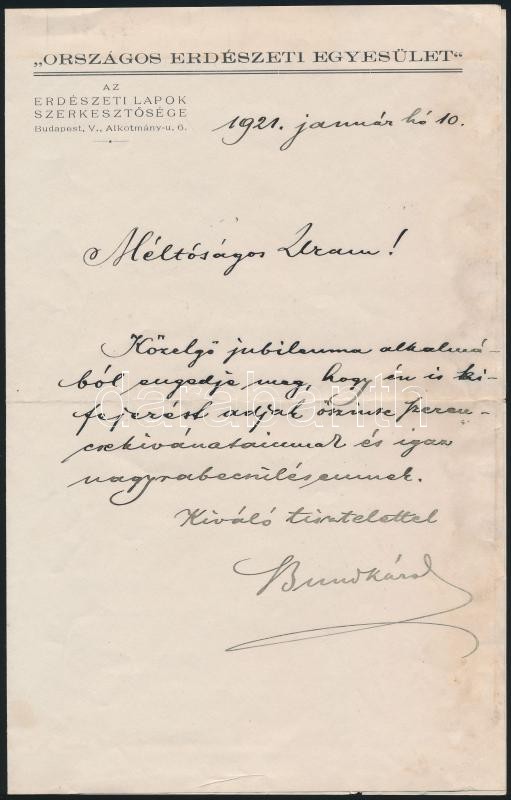 „ORSZÁGOS ERDÉSZETI EGYESÜLET“
AZ
ERDÉSZETI LAPOK
SZERKESZTŐSÉGE
Budapest, V., Alkotmány-u. 6.
1921. január hó 10.
Méltóságos Uram!
Közelgő jubileuma alkalmá-
ból engedje meg, hogy én is ki-
fejezést adjak őszinte szeren-
csekivánataimnak és igaz
nagyrabecsülésemnek.
Kiváló tisztelettel
Bund Károl
darabanth